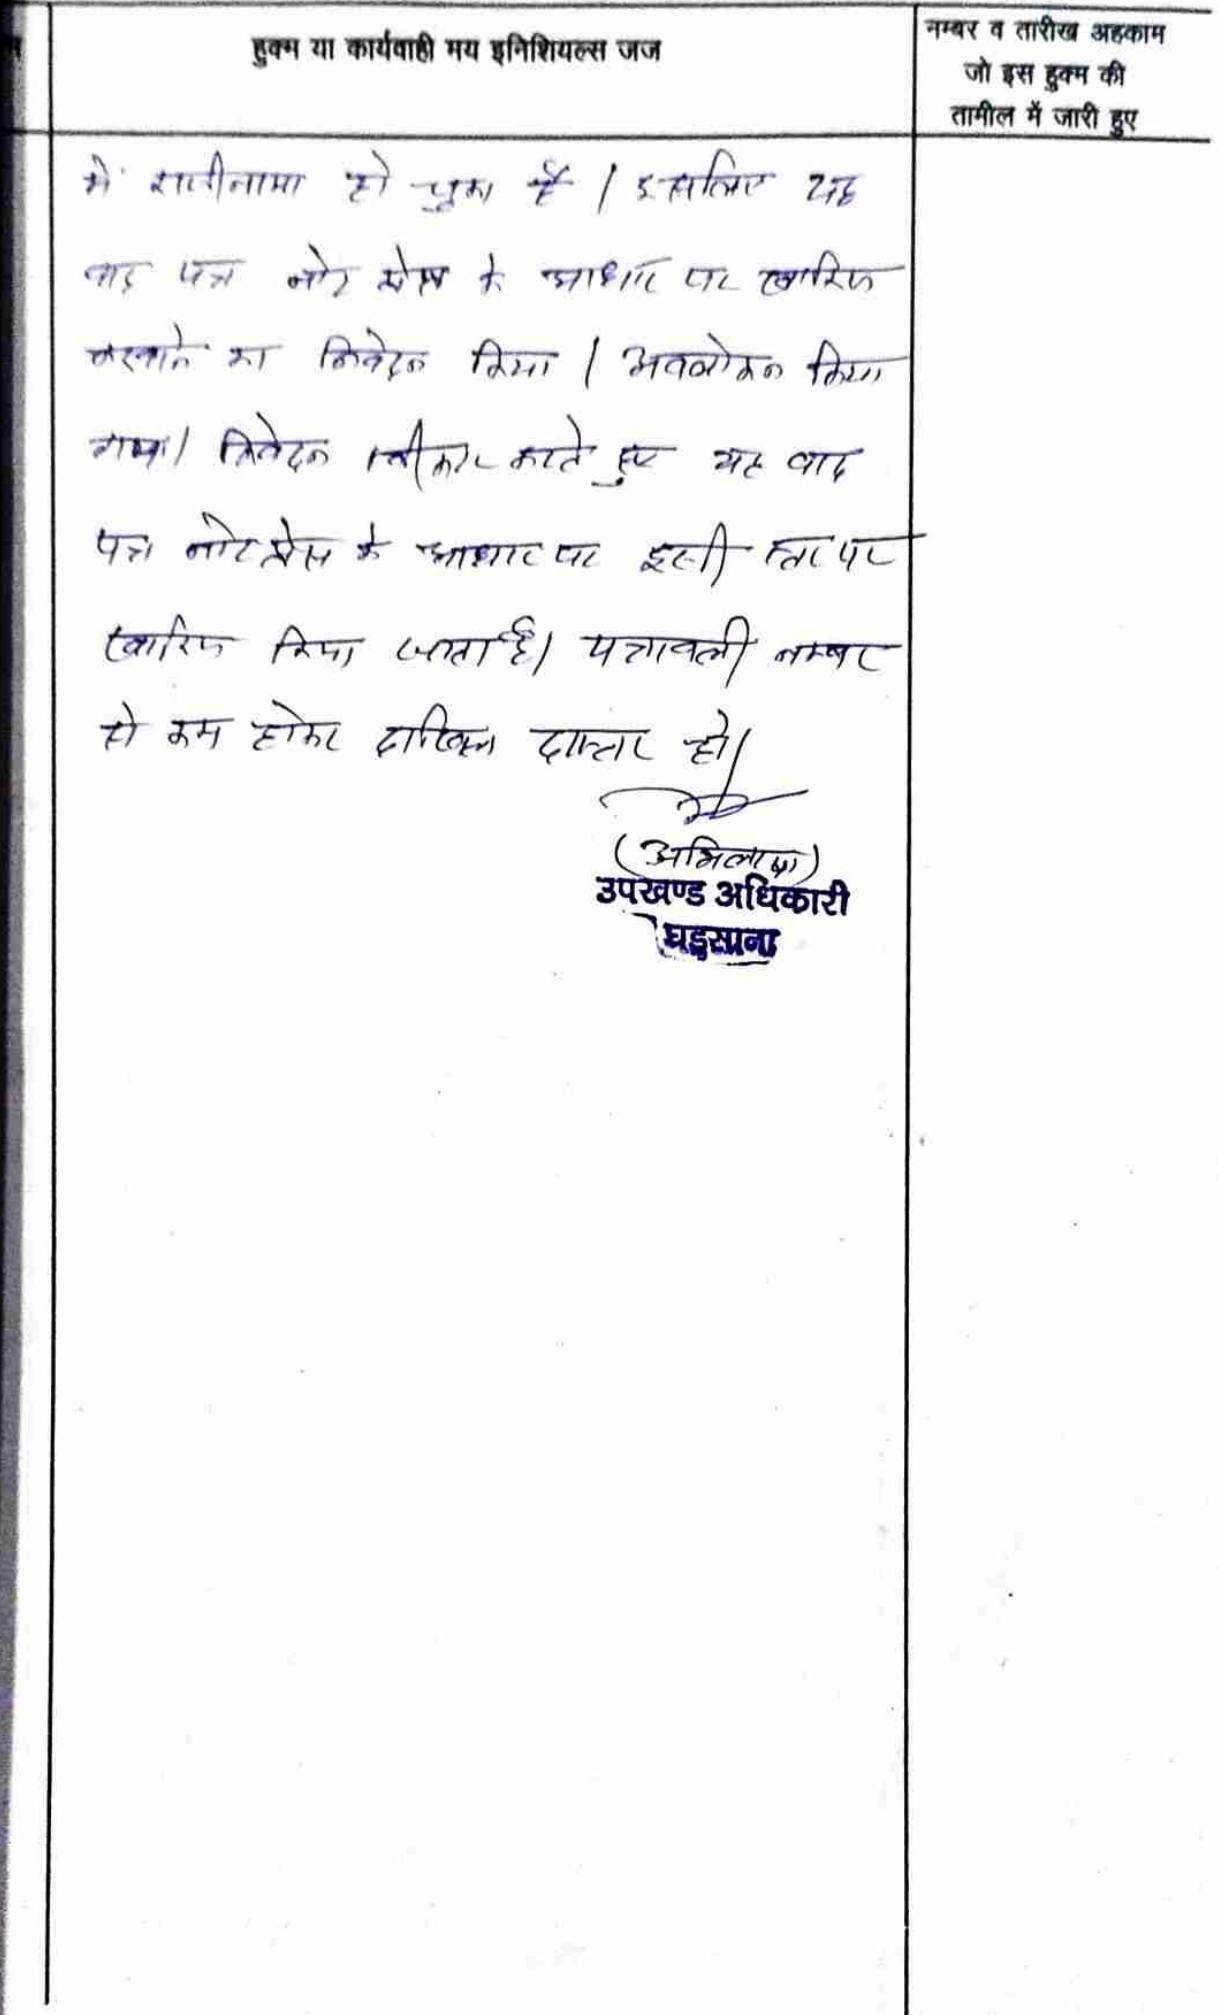 हुक्म या कार्यवाही मय इनिशियल्स जज
नम्बर व तारीख अहकाम
जो इस हुक्म की
तामील में जारी हुए
में राजीनामा हो चुका है। इसलिए यह
वाद पत्र नोट प्रेस के आधार पर खारिज
करवाने का निवेदन किया। अवलोकन किया
गया। निवेदन स्वीकार करते हुए यह वाद
पत्र नोट प्रेस के आधार पर इसी स्तर पर
खारिज किया जाता है। पत्रावली नम्बर
से कम होकर दाखिल दफ्तर हो।
(अभिलाषा)
उपखण्ड अधिकारी
घड़साना